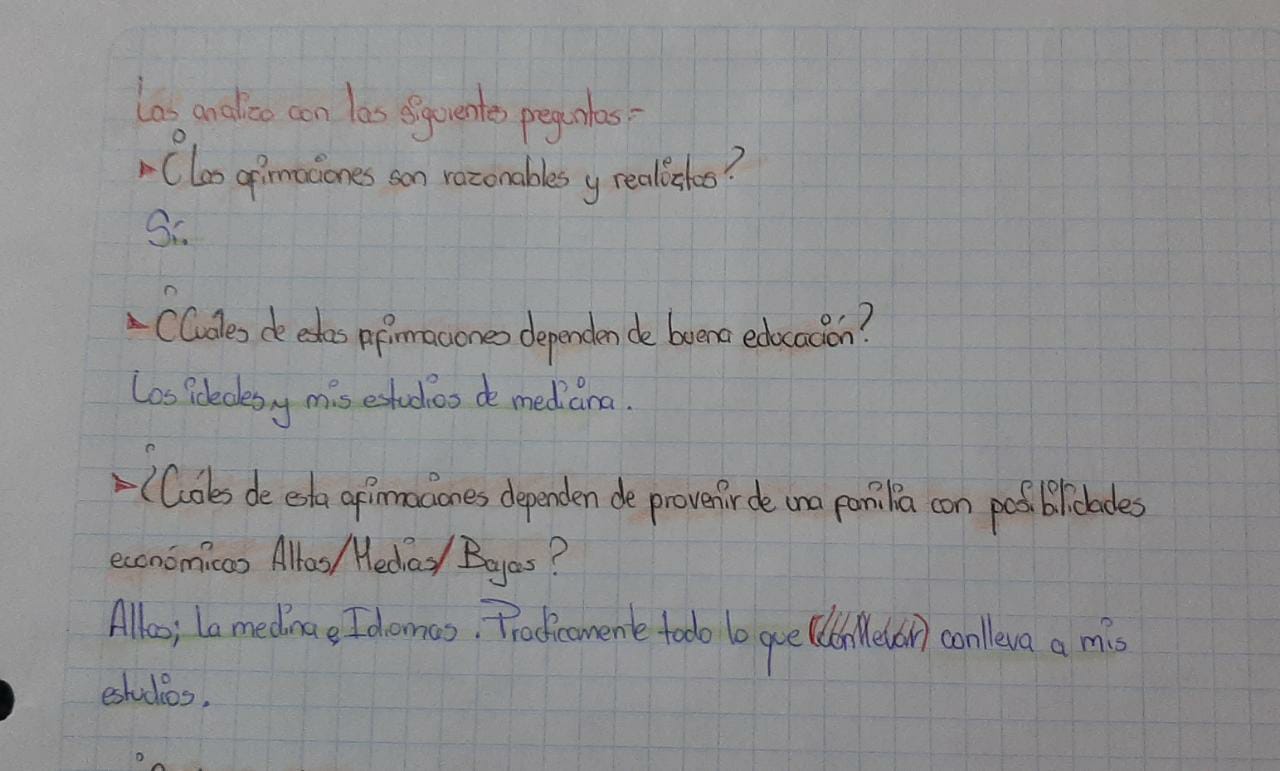 Las analizo con las siguientes preguntas:-
¿Las afirmaciones son razonables y realistas?
Sí.
¿Cuáles de estas afirmaciones dependen de buena educación?
Los ideales y mis estudios de medicina.
¿Cuáles de esta afirmaciones dependen de provenir de una familia con posibilidades
económicas Altas/Medias/Bajas?
Altas; La medina e Idiomas. Practicamente todo lo que (conllevar) conlleva a mis
estudios.